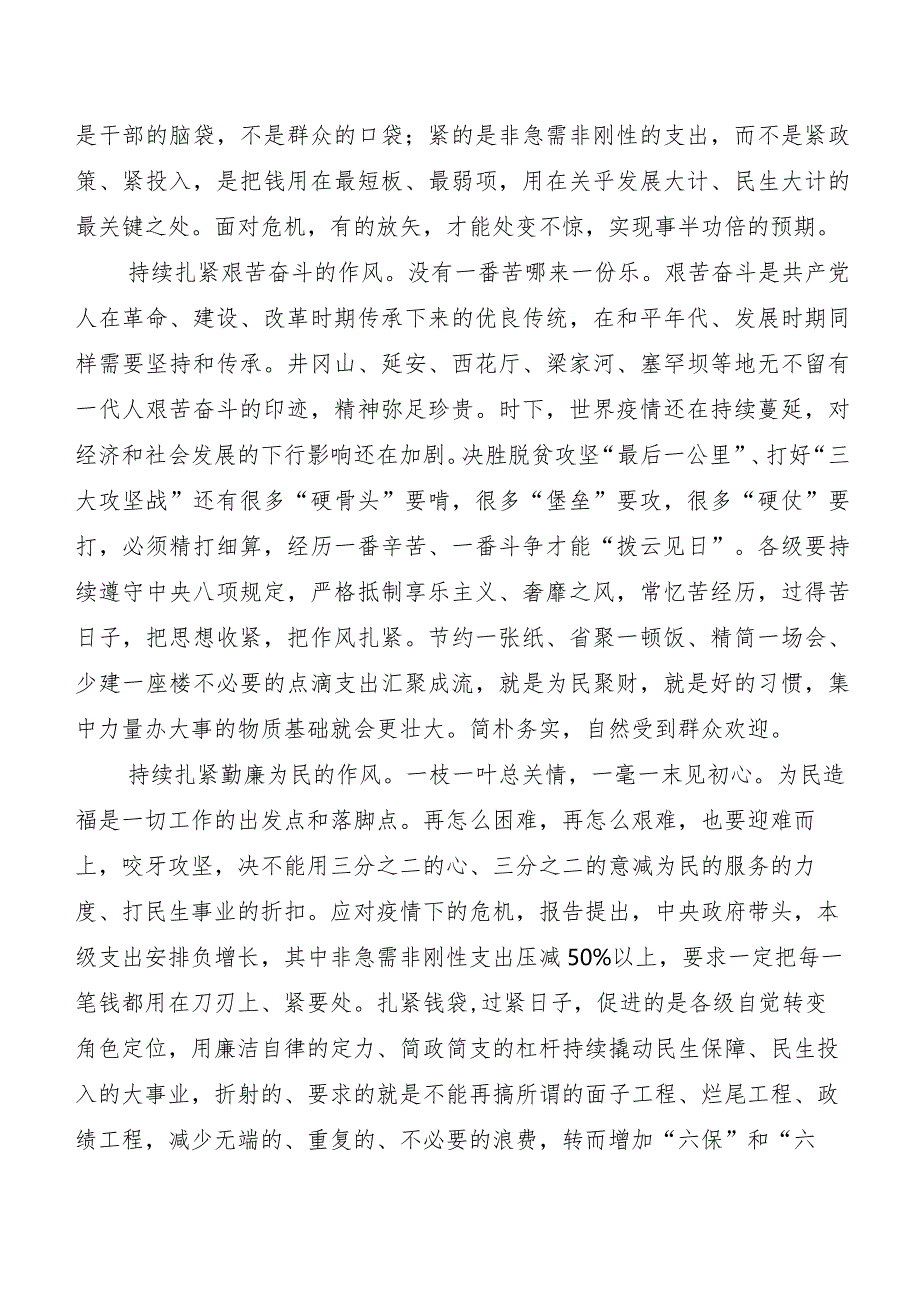 是干部的脑袋，不是群众的口袋；紧的是非急需非刚性的支出，而不是紧政
策、紧投入，是把钱用在最短板、最弱项，用在关乎发展大计、民生大计的
最关键之处。面对危机，有的放矢，才能处变不惊，实现事半功倍的预期。
持续扎紧艰苦奋斗的作风。没有一番苦哪来一份乐。艰苦奋斗是共产党
人在革命、建设、改革时期传承下来的优良传统，在和平年代、发展时期同
样需要坚持和传承。井冈山、延安、西花厅、梁家河、塞罕坝等地无不留有
一代人艰苦奋斗的印迹，精神弥足珍贵。时下，世界疫情还在持续蔓延，对
经济和社会发展的下行影响还在加剧。决胜脱贫攻坚“最后一公里”、打好“三
大攻坚战”还有很多“硬骨头”要啃，很多“堡垒”要攻，很多“硬仗”要
打，必须精打细算，经历一番辛苦、一番斗争才能“拨云见日”。各级要持
续遵守中央八项规定，严格抵制享乐主义、奢靡之风，常忆苦经历，过得苦
日子，把思想收紧，把作风扎紧。节约一张纸、省聚一顿饭、精简一场会、
少建一座楼不必要的点滴支出汇聚成流，就是为民聚财，就是好的习惯，集
中力量办大事的物质基础就会更壮大。简朴务实，自然受到群众欢迎。
持续扎紧勤廉为民的作风。一枝一叶总关情，一毫一末见初心。为民造
福是一切工作的出发点和落脚点。再怎么困难，再怎么艰难，也要迎难而
上，咬牙攻坚，决不能用三分之二的心、三分之二的意减为民的服务的力
度、打民生事业的折扣。应对疫情下的危机，报告提出，中央政府带头，本
级支出安排负增长，其中非急需非刚性支出压减50%以上，要求一定把每一
笔钱都用在刀刃上、紧要处。扎紧钱袋,过紧日子，促进的是各级自觉转变
角色定位，用廉洁自律的定力、简政简支的杠杆持续撬动民生保障、民生投
入的大事业，折射的、要求的就是不能再搞所谓的面子工程、烂尾工程、政
绩工程，减少无端的、重复的、不必要的浪费，转而增加“六保”和“六